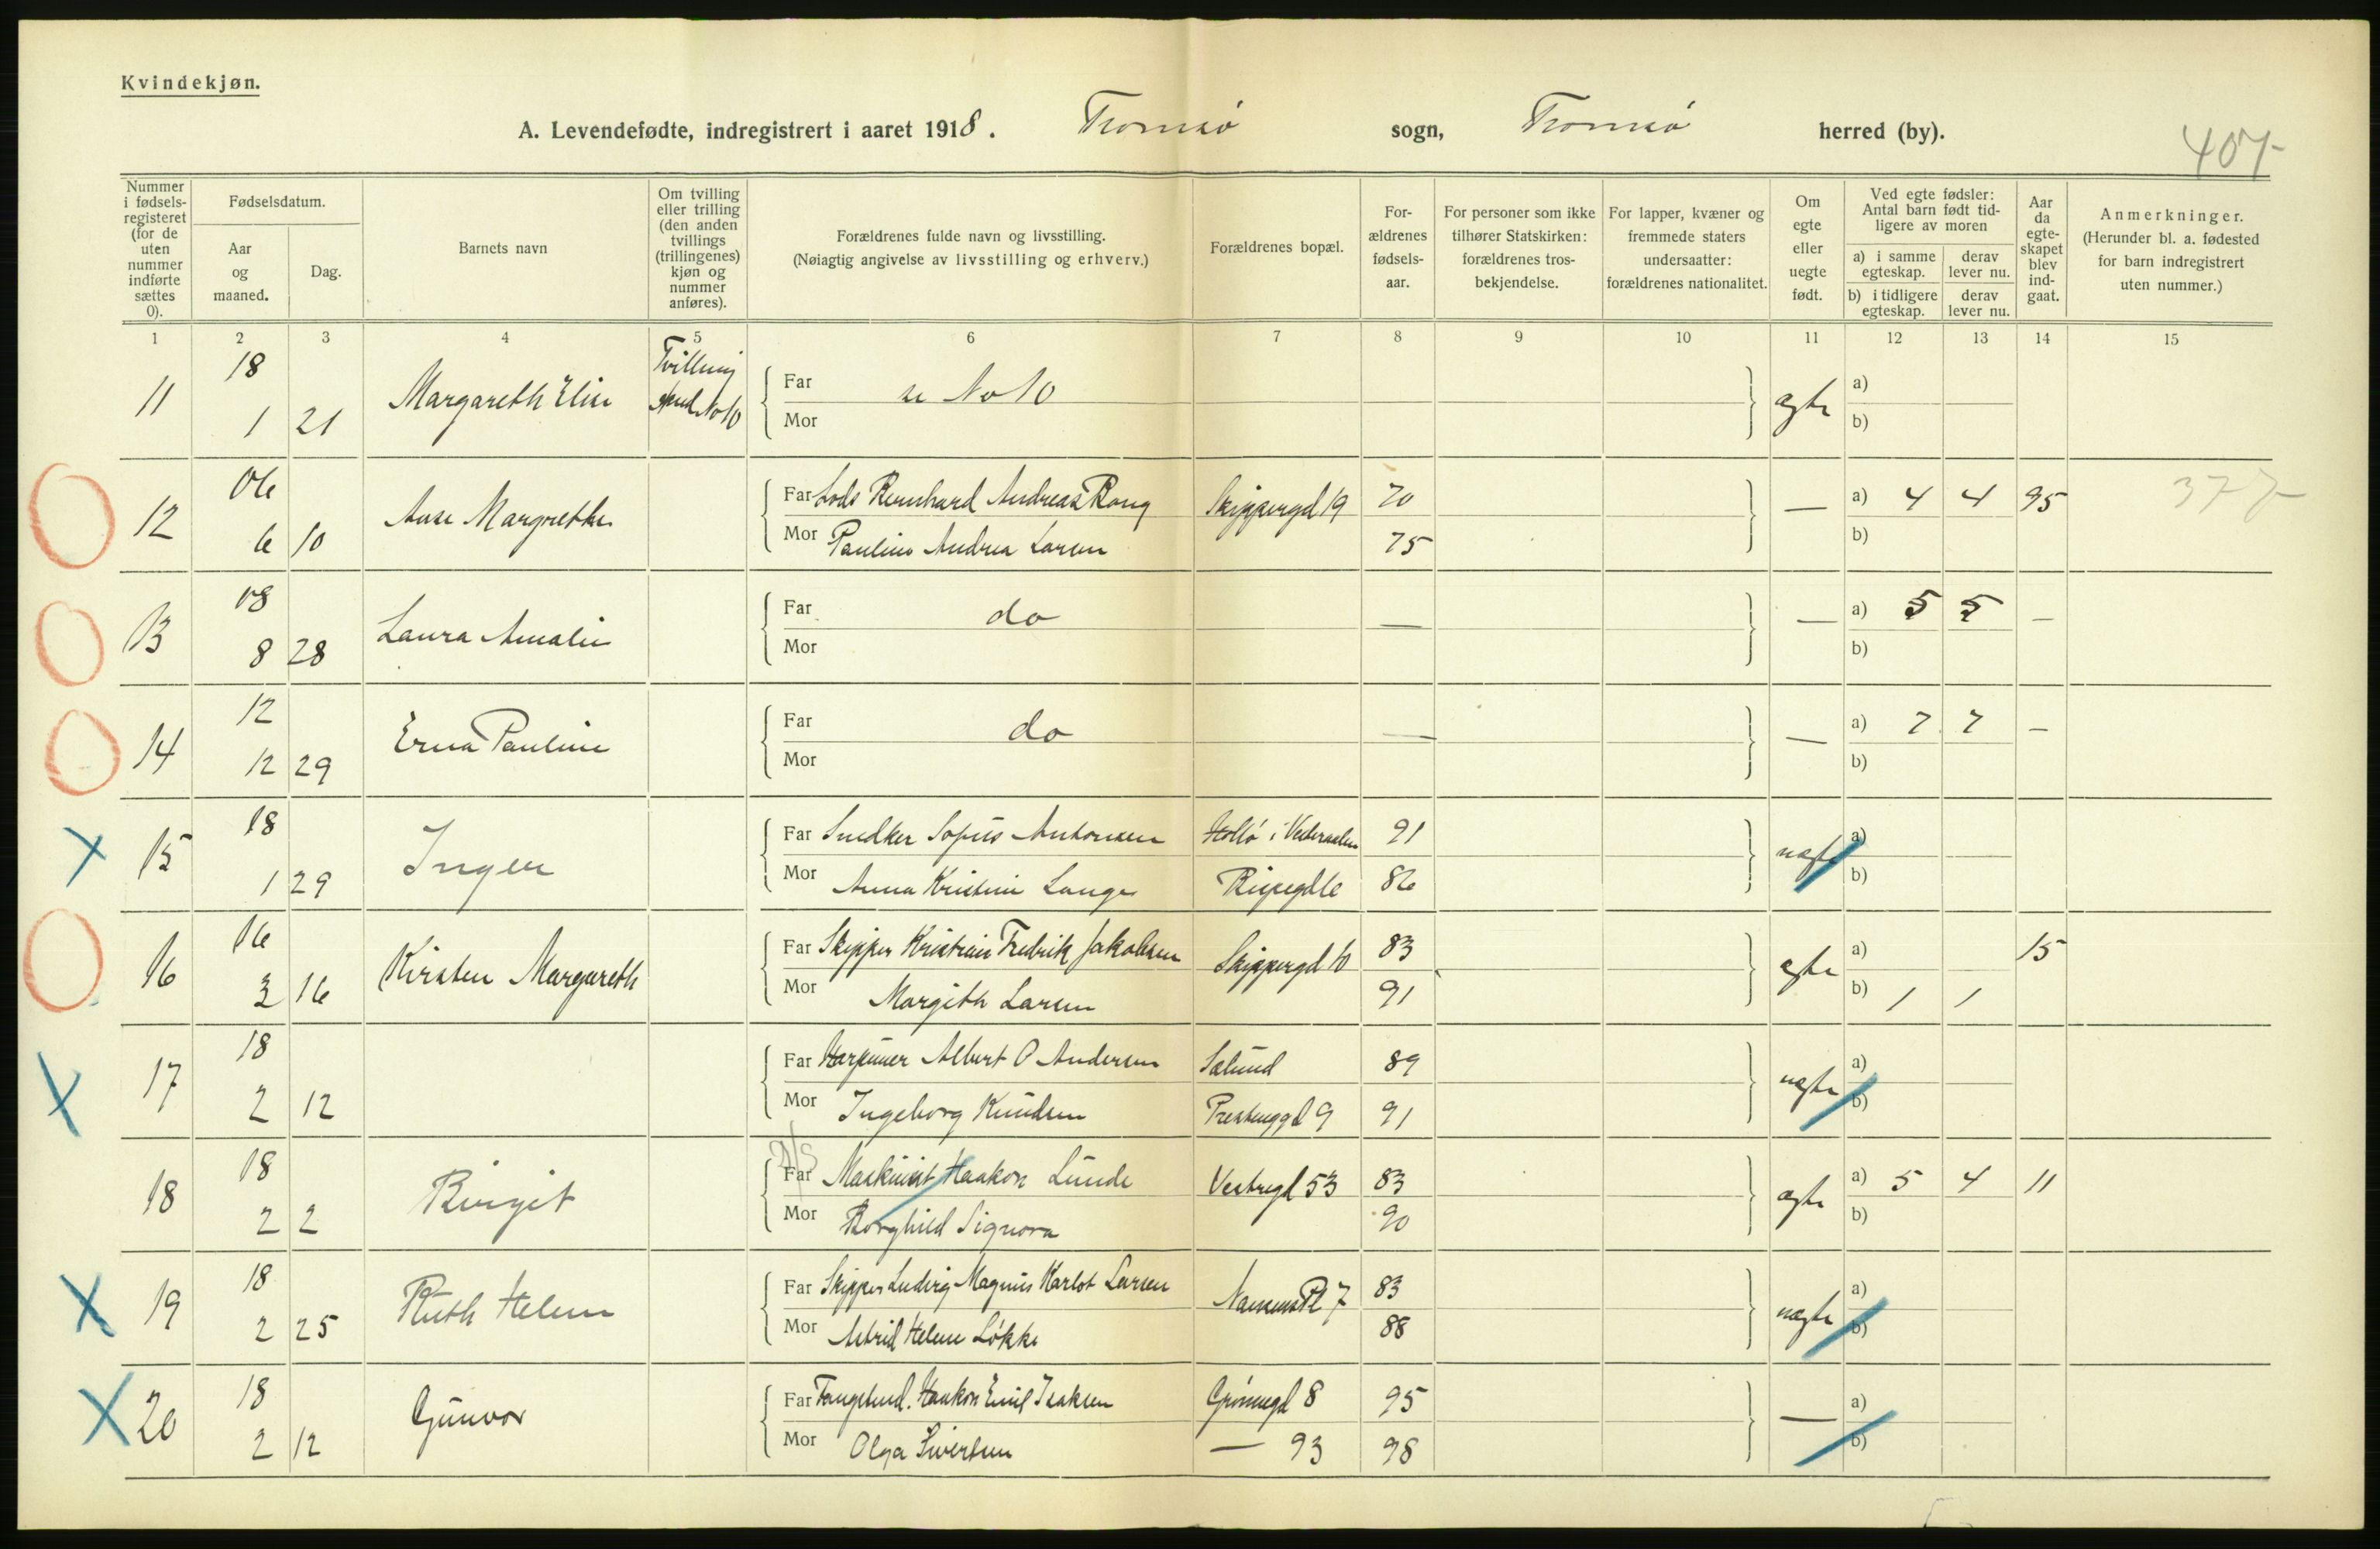 Kvindekjøn.
A. Levendefødte, indregistrert i aaret 1918. Tromsø sogn, Tromsø herred (by).
407-
Nummer i fødsels-registeret (for de uten nummer indførte sættes 0).
Fødselsdatum.
Aar og maaned.
Dag.
Barnets navn
Om tvilling eller trilling (den anden tvillings (trillingenes) kjøn og nummer anføres).
Forældrenes fulde navn og livsstilling.
(Nøiagtig angivelse av livsstilling og erhverv.)
Forældrenes bopæl.
For-ældrenes fødsels-aar.
For personer som ikke tilhører Statskirken: forældrenes tros-bekjendelse.
For lapper, kvæner og fremmede staters undersaatter: forældrenes nationalitet.
Om egte eller uegte født.
Ved egte fødsler: Antal barn født tid-ligere av moren
a) i samme egteskap.
derav lever nu.
b) i tidligere egteskap.
derav lever nu.
Aar da egte-skapet blev ind-gaat.
Anmerkninger.
(Herunder bl. a. fødested for barn indregistrert uten nummer.)
1 2 3 4 5 6 7 8 9 10 11 12 13 14 15
11 18 1 21 Margareth Elise Tvilling No 10 Far se No 10 ægte a)
Mor b)
12 06 6 10 Aase Margrethe Far Lods Bernhard Andreas Rong Skippergd 19 70 — a) 4 4 95 377-
Mor Pauline Andrea Larsen 75 b)
13 08 8 28 Laura Amalie Far do — — a) 5 5 —
Mor b)
14 12 12 29 Erna Pauline Far do — — a) 7 7 —
Mor b)
15 18 1 29 Inger Far Snedker Sofus Antonsen i Vesteraalen 91 uægte a)
Mor Anna Kristine Lange 86 b)
16 16 3 16 Kirsten Margareth Far Skipper Kristian Fredrik Jakobsen Skippergd 10 83 ægte a) 15
Mor Margith Larsen 91 b) 1 1
17 18 2 12 Far Harpuner Albert O Andersen 89 uægte a)
Mor Ingeborg Knudsen 9 91 b)
18 18 2 2 Birgit Far Maskinist Haakon Lunde Vestregd 53 83 ægte a) 5 4 11
Mor Borghild Signora 90 b)
19 18 2 25 Ruth Helene Far Skipper Ludvig Magnus Karlot Larsen Nansens Pl 7 83 uægte a)
Mor Astrid Helene Løkke 88 b)
20 18 2 12 Gunvor Far Fangstmd. Haakon Emil Isaksen Grønnegd 8 95 — a)
Mor Olga Sivertsen — 93 98 b)